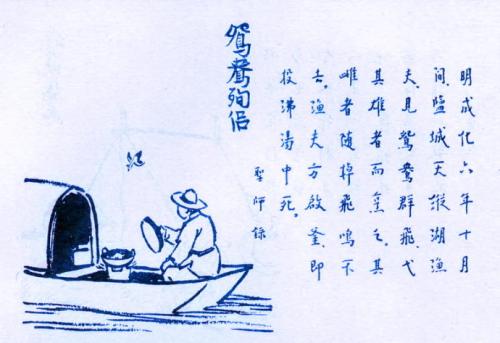 鴛鴦殉侶
明成化六年十月
間、鹽城天縱湖漁
夫、見鴛鴦群飛、弋
其雄者而烹之、其
雌者隨棹飛鳴不
去、漁夫方啟釜、即
投沸湯中死。
聖師錄